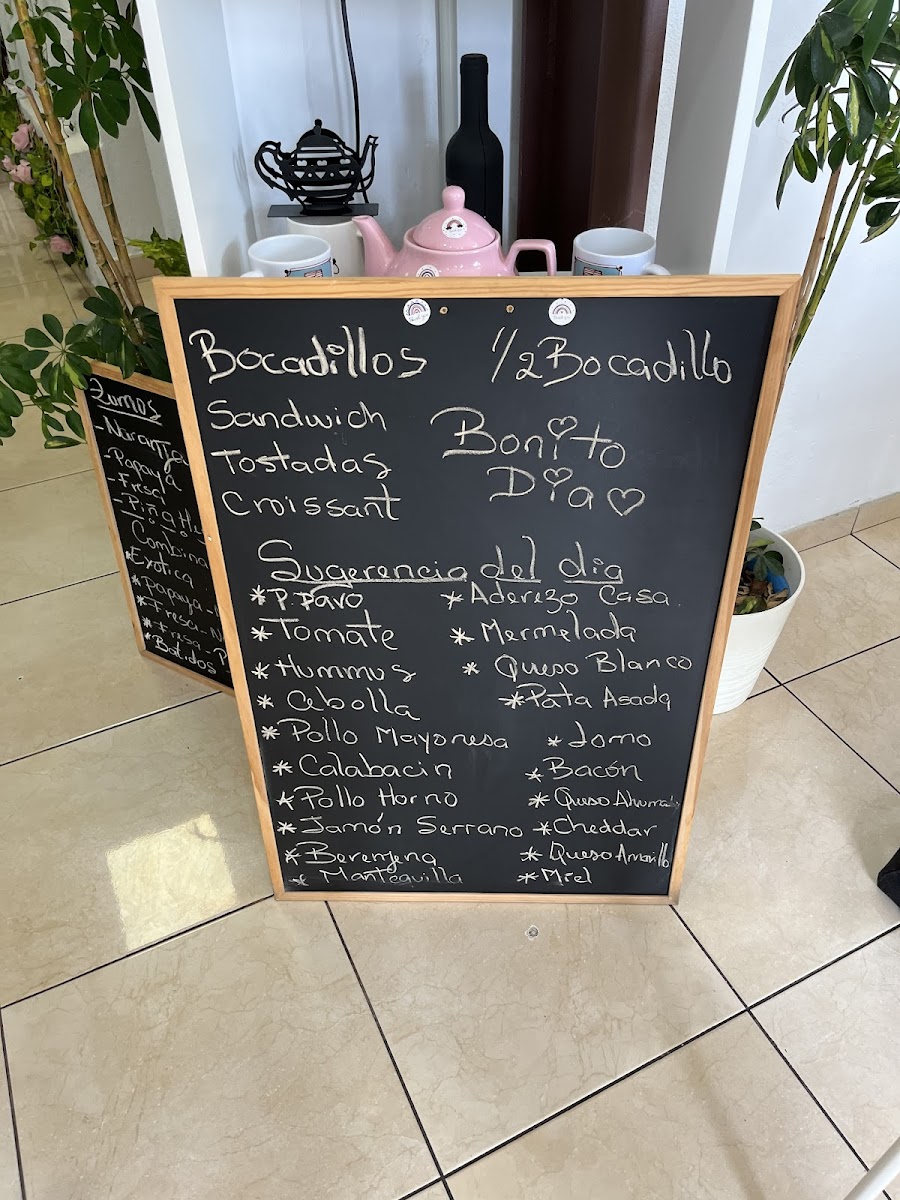 Bocadillos 1/2 Bocadillo
Sandwich
Tostadas
Croissant
Bonito
Día
Sugerencia del día
* P. Pavo
* Tomate
* Hummus
* Cebolla
* Pollo Mayonesa
* Calabacin
* Pollo Horno
* Jamón Serrano
* Berenjena
* Mantequilla
* Aderezo Casa
* Mermelada
* Queso Blanco
* Pata Asada
* Lomo
* Bacón
* Queso Ahumado
* Cheddar
* Queso Amarillo
* Miel
Zumos
- Naranja
- Papaya
- Fresa
- Piña
Combina
Exotica
* Papaya -
* Fresa - N
* Fresa - P
* Batidos